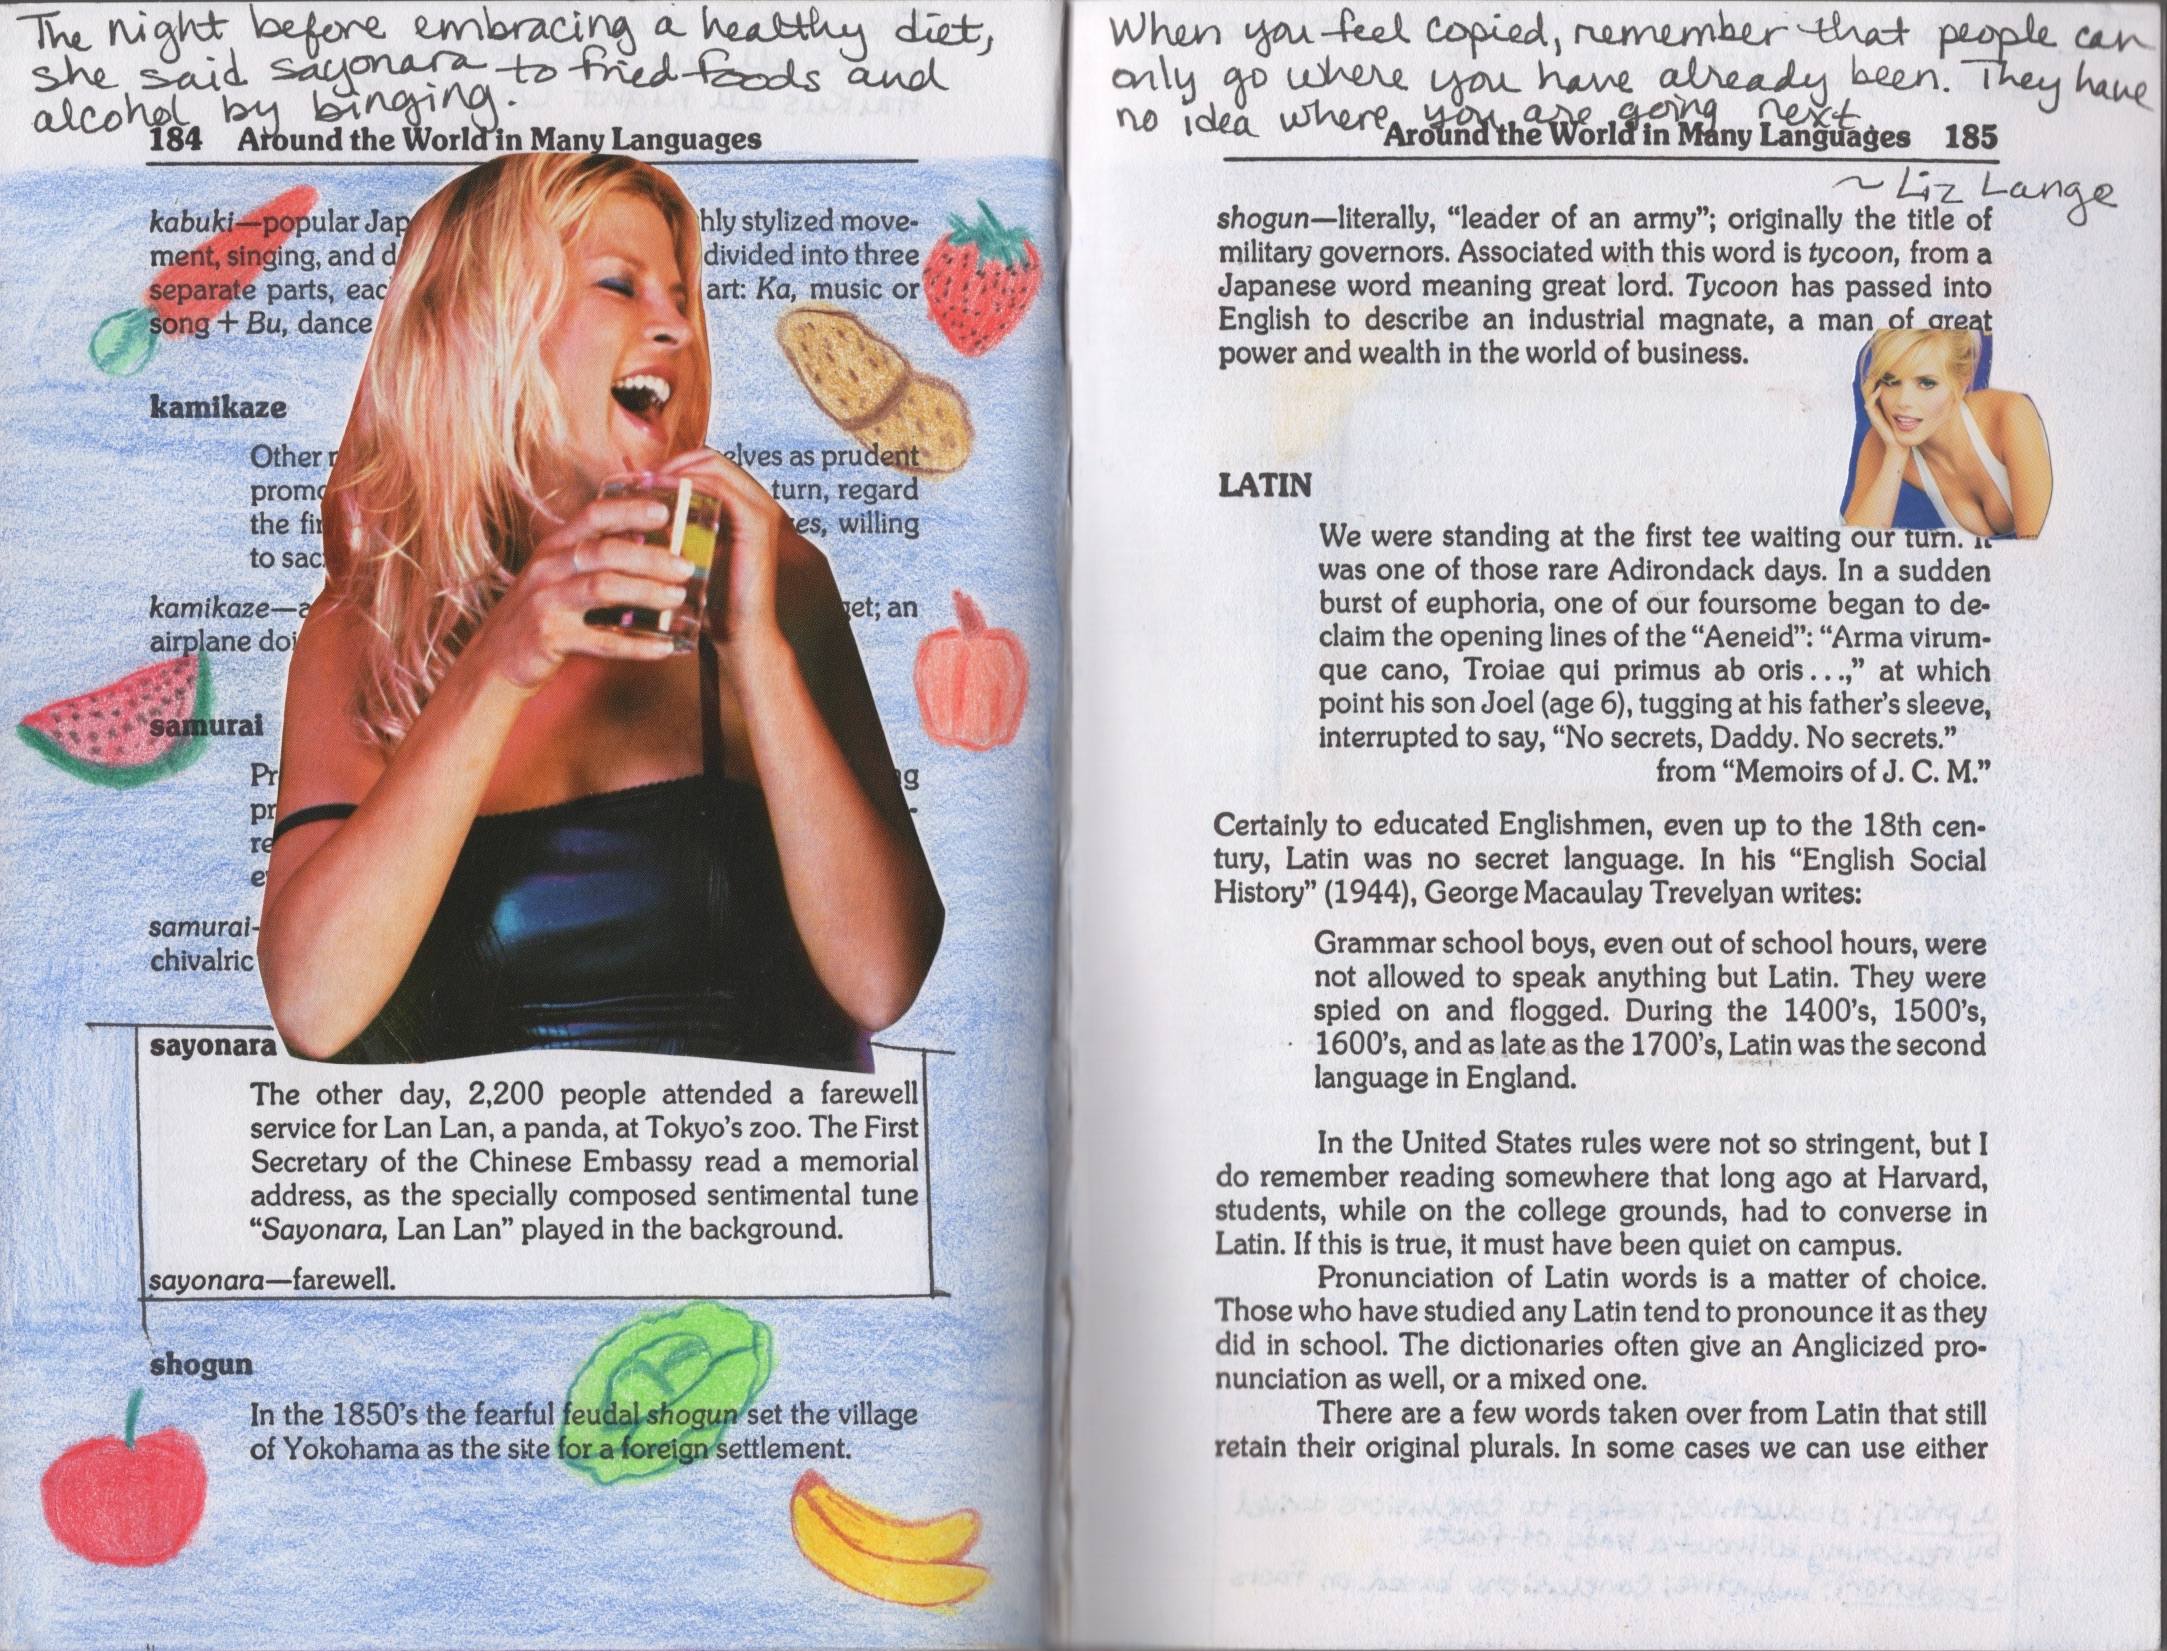 The night before embracing a healthy diet,
she said sayonara to fried foods and
alcohol by binging.
184 Around the World in Many Languages
kabuki—popular Jap hly stylized move-
ment, singing, and d divided into three
separate parts, eac art: Ka, music or
song + Bu, dance
kamikaze
Other r elves as prudent
promo turn, regard
the fir es, willing
to sac
kamikaze—a get; an
airplane doi
samurai
Pr g
pr -
re
e
samurai-
chivalric
sayonara
The other day, 2,200 people attended a farewell
service for Lan Lan, a panda, at Tokyo's zoo. The First
Secretary of the Chinese Embassy read a memorial
address, as the specially composed sentimental tune
“Sayonara, Lan Lan” played in the background.
sayonara—farewell.
shogun
In the 1850's the fearful feudal shogun set the village
of Yokohama as the site for a foreign settlement.
When you feel copied, remember that people can
only go where you have already been. They have
no idea where you are going next.
Around the World in Many Languages 185
~ Liz Lange
shogun—literally, “leader of an army”; originally the title of
military governors. Associated with this word is tycoon, from a
Japanese word meaning great lord. Tycoon has passed into
English to describe an industrial magnate, a man of great
power and wealth in the world of business.
LATIN
We were standing at the first tee waiting our turn. It
was one of those rare Adirondack days. In a sudden
burst of euphoria, one of our foursome began to de-
claim the opening lines of the “Aeneid”: “Arma virum-
que cano, Troiae qui primus ab oris...,” at which
point his son Joel (age 6), tugging at his father's sleeve,
interrupted to say, “No secrets, Daddy. No secrets.”
from “Memoirs of J. C. M.”
Certainly to educated Englishmen, even up to the 18th cen-
tury, Latin was no secret language. In his “English Social
History” (1944), George Macaulay Trevelyan writes:
Grammar school boys, even out of school hours, were
not allowed to speak anything but Latin. They were
spied on and flogged. During the 1400's, 1500's,
1600's, and as late as the 1700's, Latin was the second
language in England.
In the United States rules were not so stringent, but I
do remember reading somewhere that long ago at Harvard,
students, while on the college grounds, had to converse in
Latin. If this is true, it must have been quiet on campus.
Pronunciation of Latin words is a matter of choice.
Those who have studied any Latin tend to pronounce it as they
did in school. The dictionaries often give an Anglicized pro-
nunciation as well, or a mixed one.
There are a few words taken over from Latin that still
retain their original plurals. In some cases we can use either